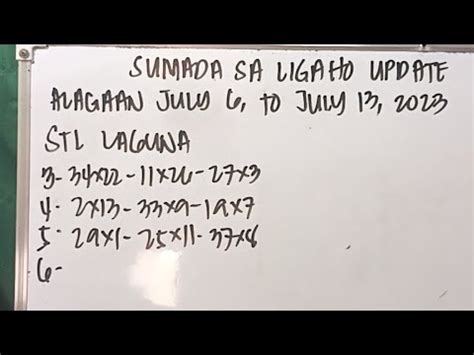 SUMADA SA LIGAHO UPDATE
ALAGAAN JULY 6, TO JULY 13, 2023
STL LAGUNA
3- 34x22-11x26-27x3
4- 2x13-33x9-19x7
5- 29x1-25x11-37x8
6-